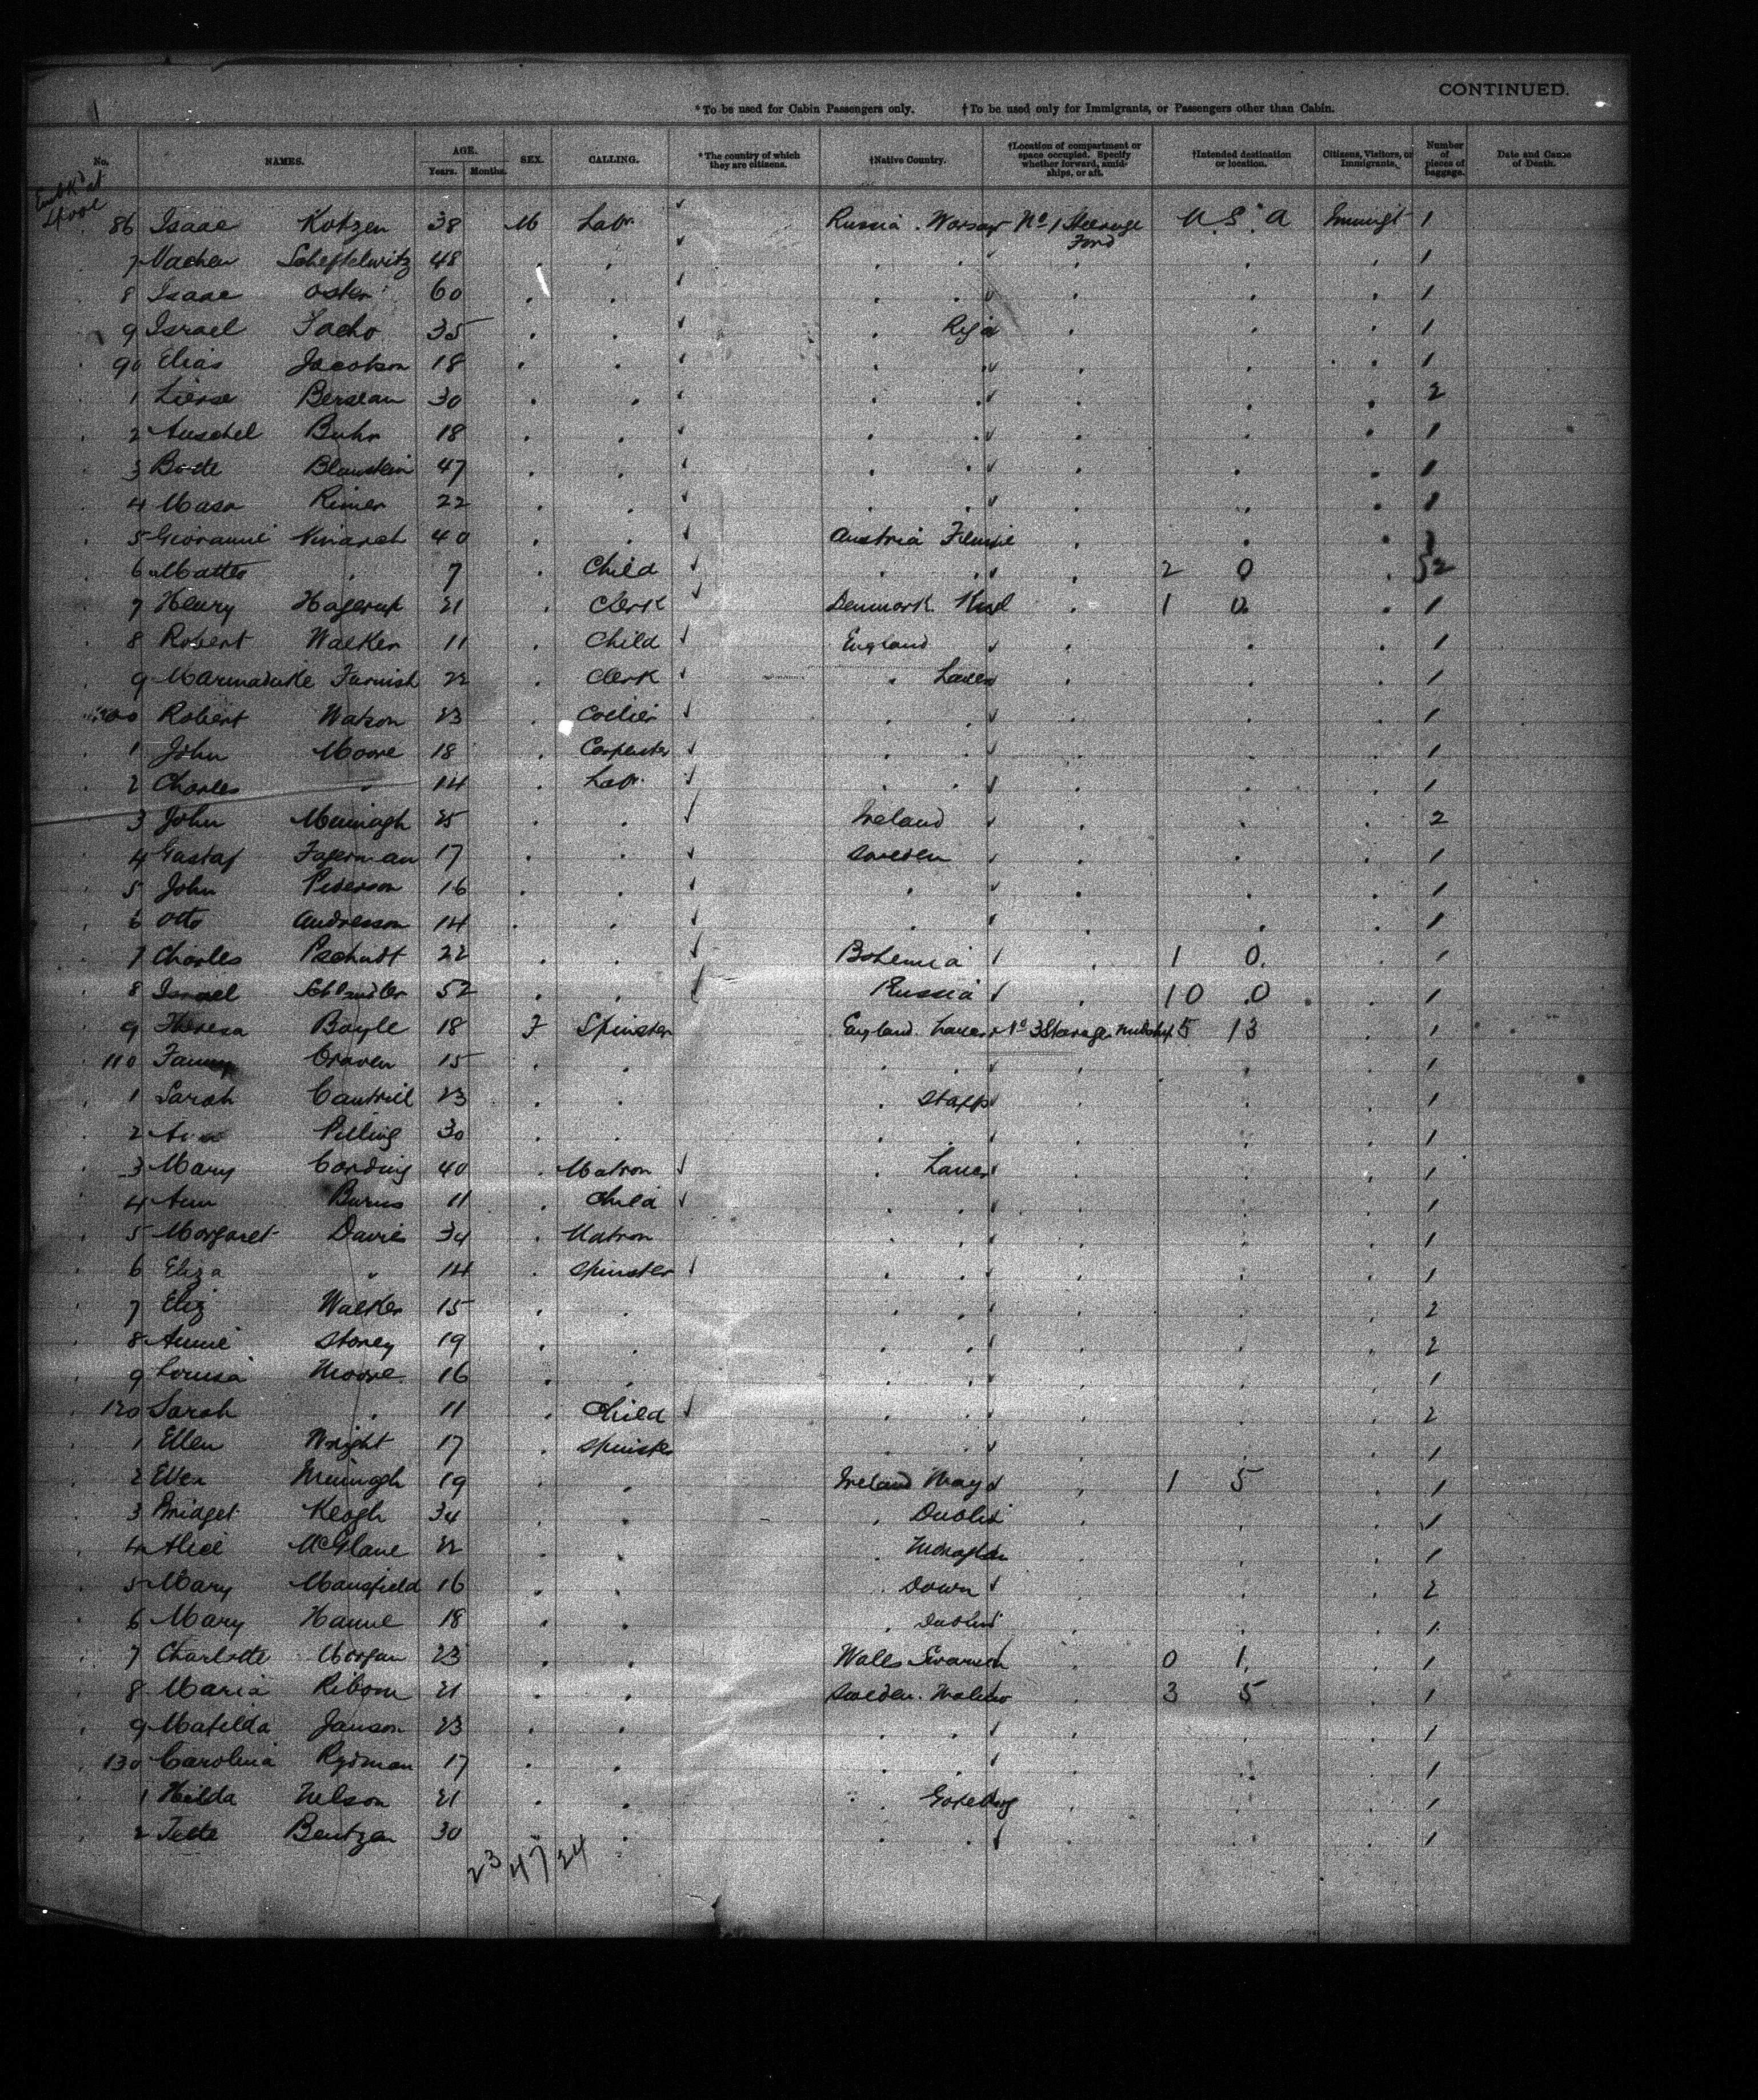 CONTINUED.
1
*To be used for Cabin Passengers only. †To be used only for Immigrants, or Passengers other than Cabin.
No. NAMES. AGE. Years. Months. SEX. CALLING. *The country of which they are citizens. †Native Country. †Location of compartment or space occupied. Specify whether forward, amidships, or aft. †Intended destination or location. Citizens, Visitors, or Immigrants. Number of pieces of baggage. Date and Cause of Death.
Embk'd at
Lpool
86 Isaac Kotzen 38 M Labr. Russia. Warsaw No 1 Steerage Ford U.S.A Immigt 1
7 Scheftelwitz 48 . . . . . . . 1
8 Isaac 60 . . . . . . . 1
9 Israel Sacho 35 . . . Riga . . . 1
90 Elias Jacobson 18 . . . . . . . 1
1 30 . . . . . . . 2
2 Anschel Buhr 18 . . . . . . . 1
3 Bode Blaustein 47 . . . . . . . 1
4 Rimer 22 . . . . . . . 1
5 Giovanni 40 . . Austria Fiume . . .
6 Matteo . 7 . Child . . . 2 0 . 2
7 Henry Hagerup 21 . Clerk Denmark . 1 0 . 1
8 Robert Walker 11 . Child England . . . 1
9 Marmaduke Furnish 22 . Clerk . Lancs . . . 1
100 Robert Watson 23 . Collier . . . . . 1
1 John Moore 18 . Carpenter . . . . . 1
2 Charles " 14 . Labr. . . . . . 1
3 John 25 . . Ireland . . . 2
4 Gustaf Fagerman 17 . . Sweden . . . 1
5 John Pederson 16 . . . . . . 1
6 Otto Andresson 14 . . . . . . 1
7 Charles 22 . . Bohemia . 1 0 . 1
8 Israel 52 . . Russia . 10 0 . 1
9 Theresa Boyle 18 F Spinster England. Lancs No 3 Steerage Midship 5 13 . 1
110 Fanny Craven 15 . . . . . . . 1
1 Sarah Cantrill 23 . . . Staffs . . . 1
2 Pilling 30 . . . . . . . 1
3 Mary Carding 40 . Matron . Lancs . . . 1
4 Ann Burns 11 . Child . . . . . 1
5 Margaret Davies 34 . Matron . . . . . 1
6 Eliza " 14 . Spinster . . . . . 1
7 Eliz Walker 15 . . . . . . . 2
8 Annie Storey 19 . . . . . . . 2
9 Louisa Moore 16 . . . . . . . 1
120 Sarah . 11 . Child . . . . . 2
1 Ellen Wright 17 . Spinster . . . . . 1
2 Ellen 19 . . Ireland Mayo . 1 5 . 1
3 Bridget Keogh 34 . . . Dublin . . . 1
4 Alice McGlane 22 . . . Monaghan . . . 1
5 Mary Mansfield 16 . . . Down . . . 2
6 Mary Hanne 18 . . . Dublin . . . 1
7 Charlotte Morgan 23 . . Wales Swansea . 0 1 . 1
8 Maria Ribom 21 . . Sweden. Malmo . 3 5 . 1
9 Matilda Janson 23 . . . . . . . 1
130 Carolina Rydman 17 . . . . . . . 1
1 Hilda Nelson 21 . . . Goteborg . . . 1
2 Bentzen 30 . . . . . . . 1
23 47 24